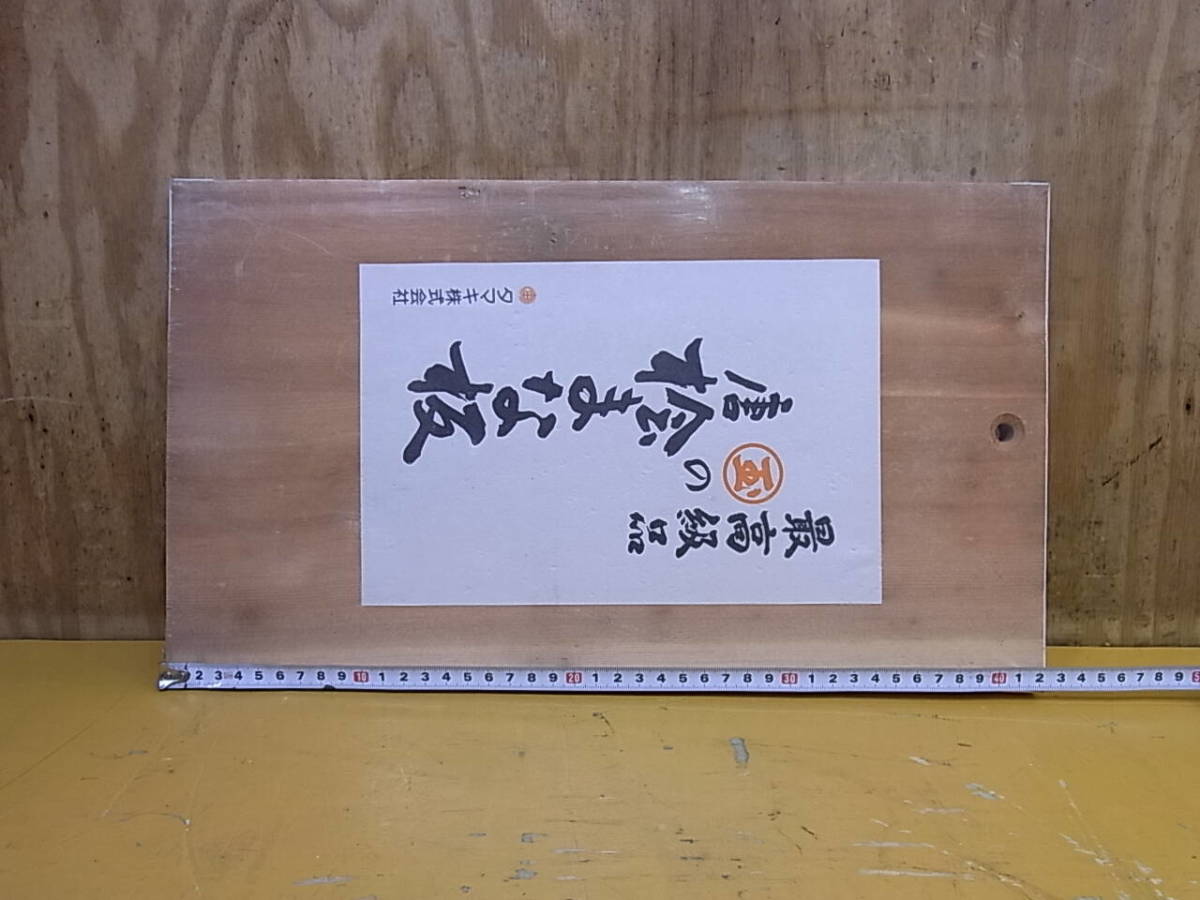 最高級品
玉の
唐桧まな板
タマキ株式会社
2 3 4 5 6 7 8 9 10 1 2 3 4 5 6 7 8 9 20 1 2 3 4 5 6 7 8 9 30 1 2 3 4 5 6 7 8 9 40 1 2 3 4 5 6 7 8 9 5